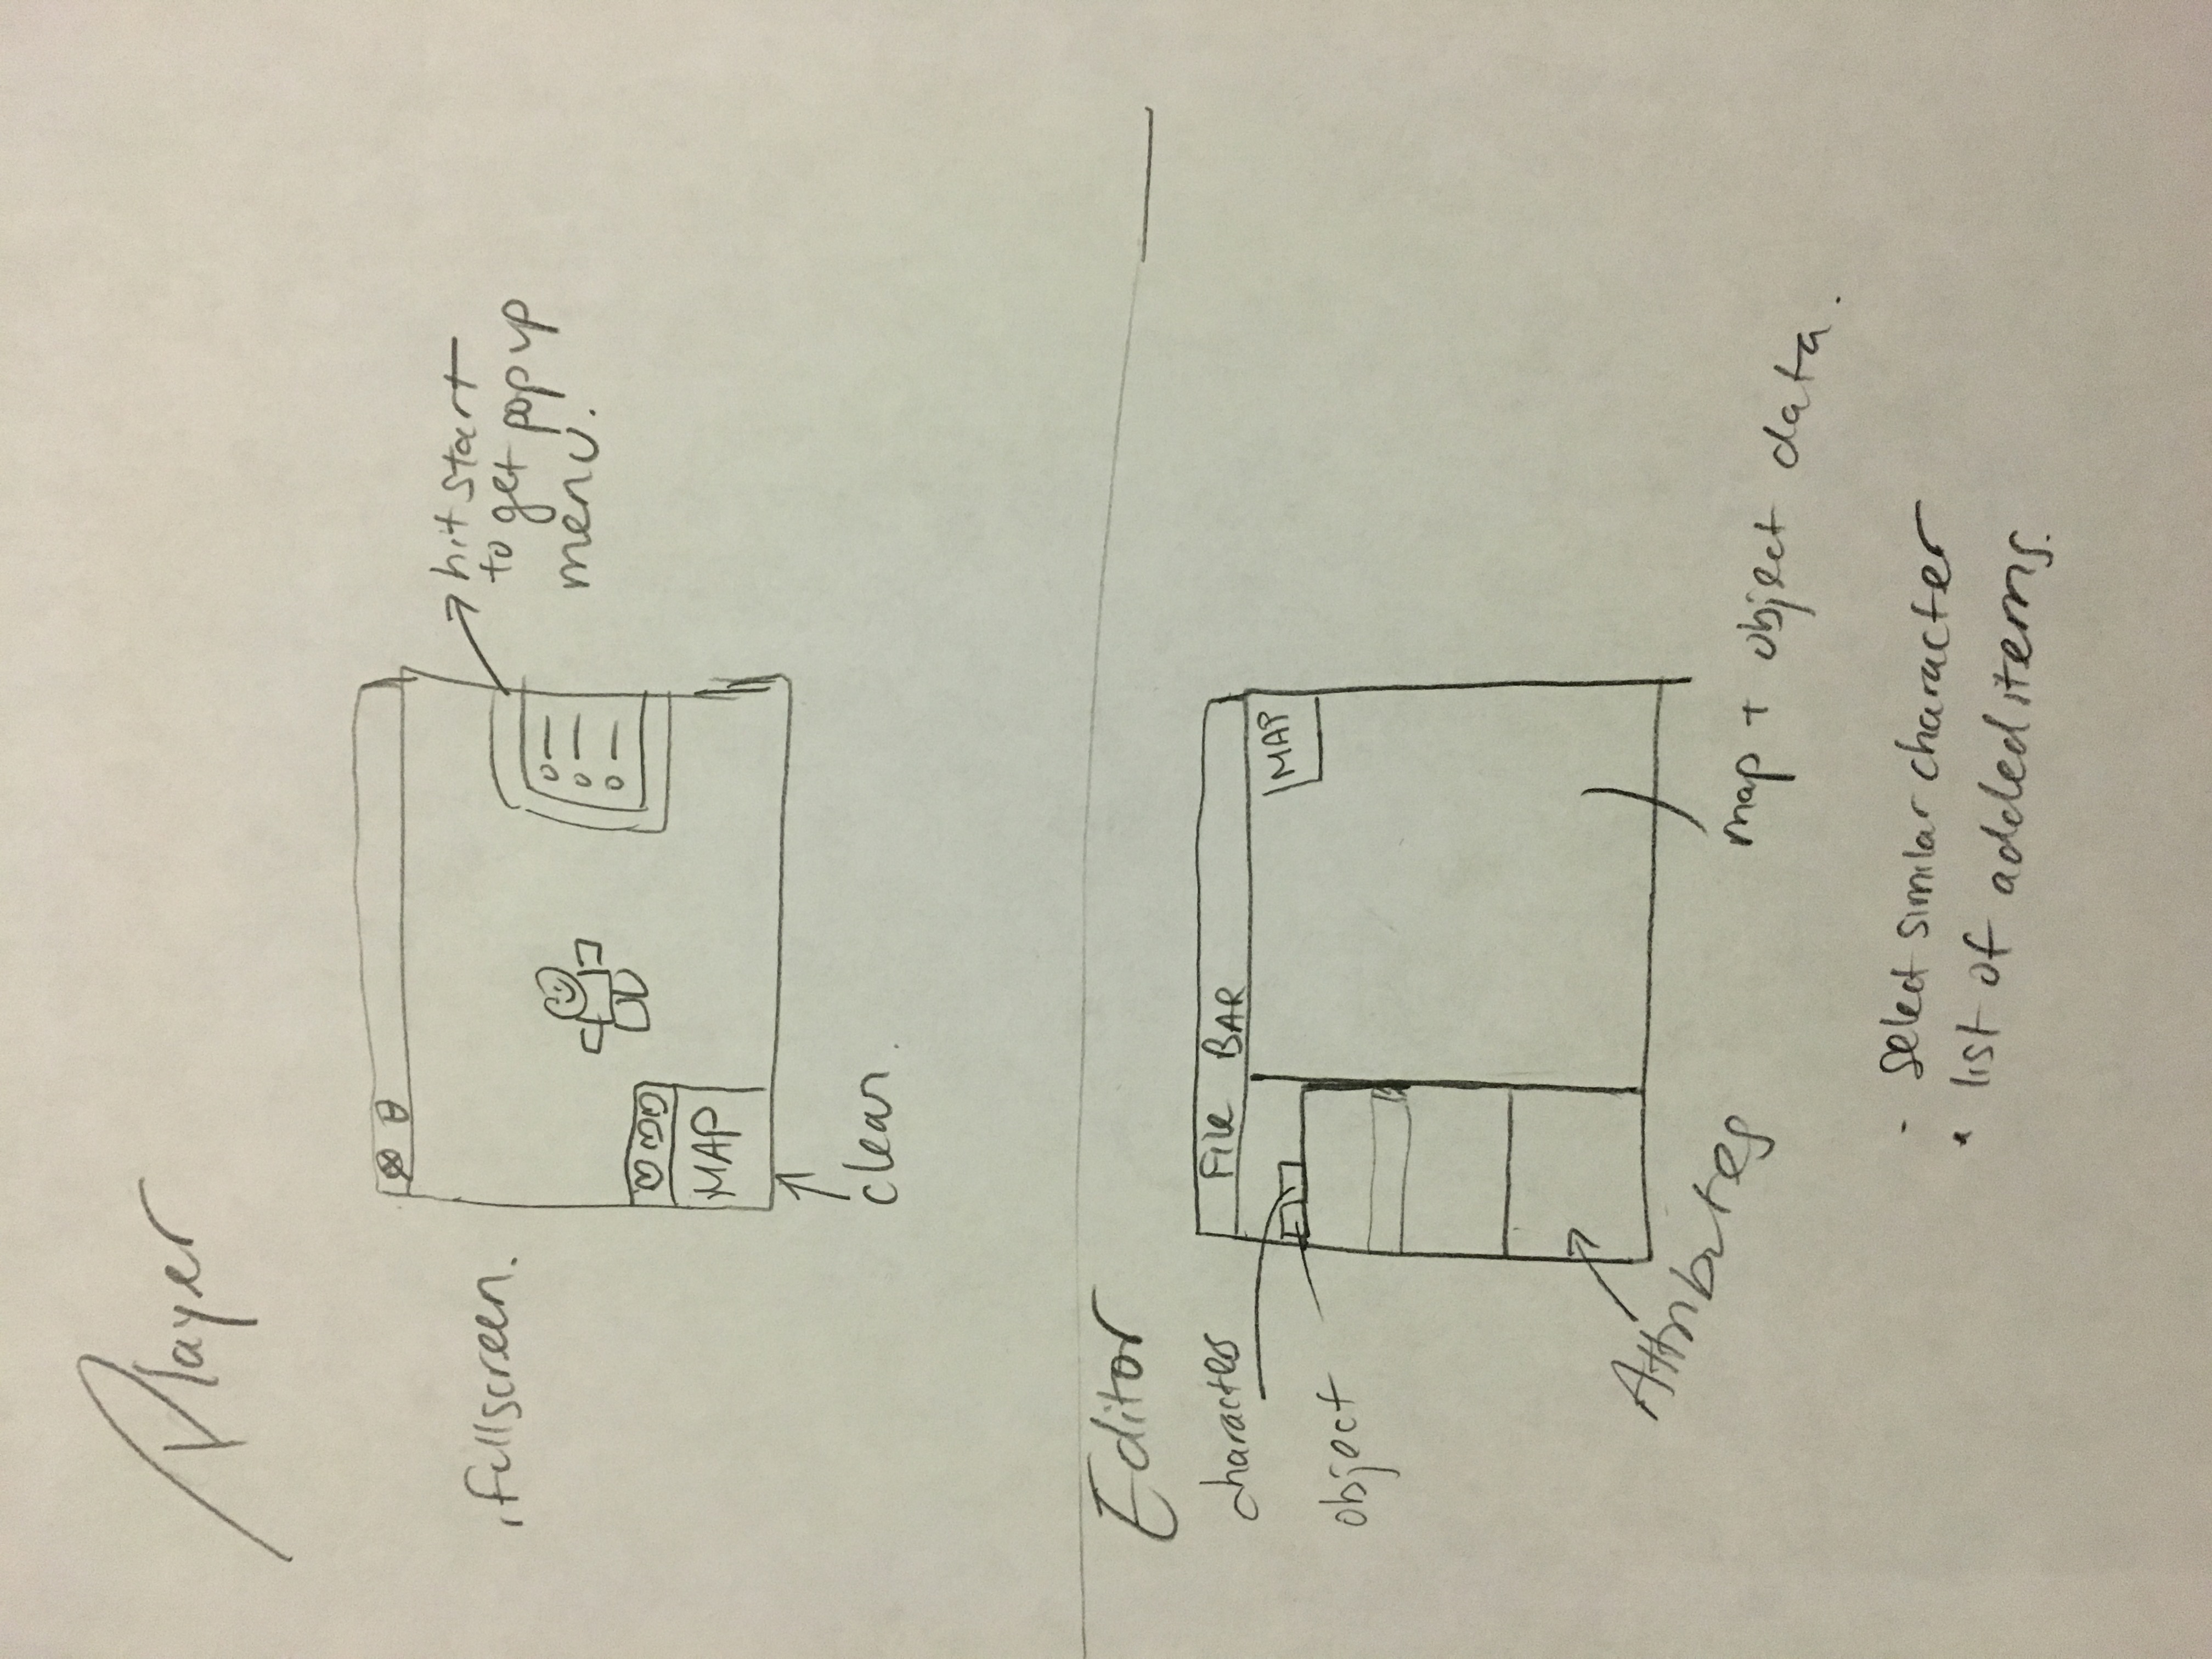 Player
fullscreen.
hit start
to get popup
menu.
MAP
clear.
Editor
File BAR
characters
MAP
object
Attributes
map + object data.
- select similar character
• list of added items.